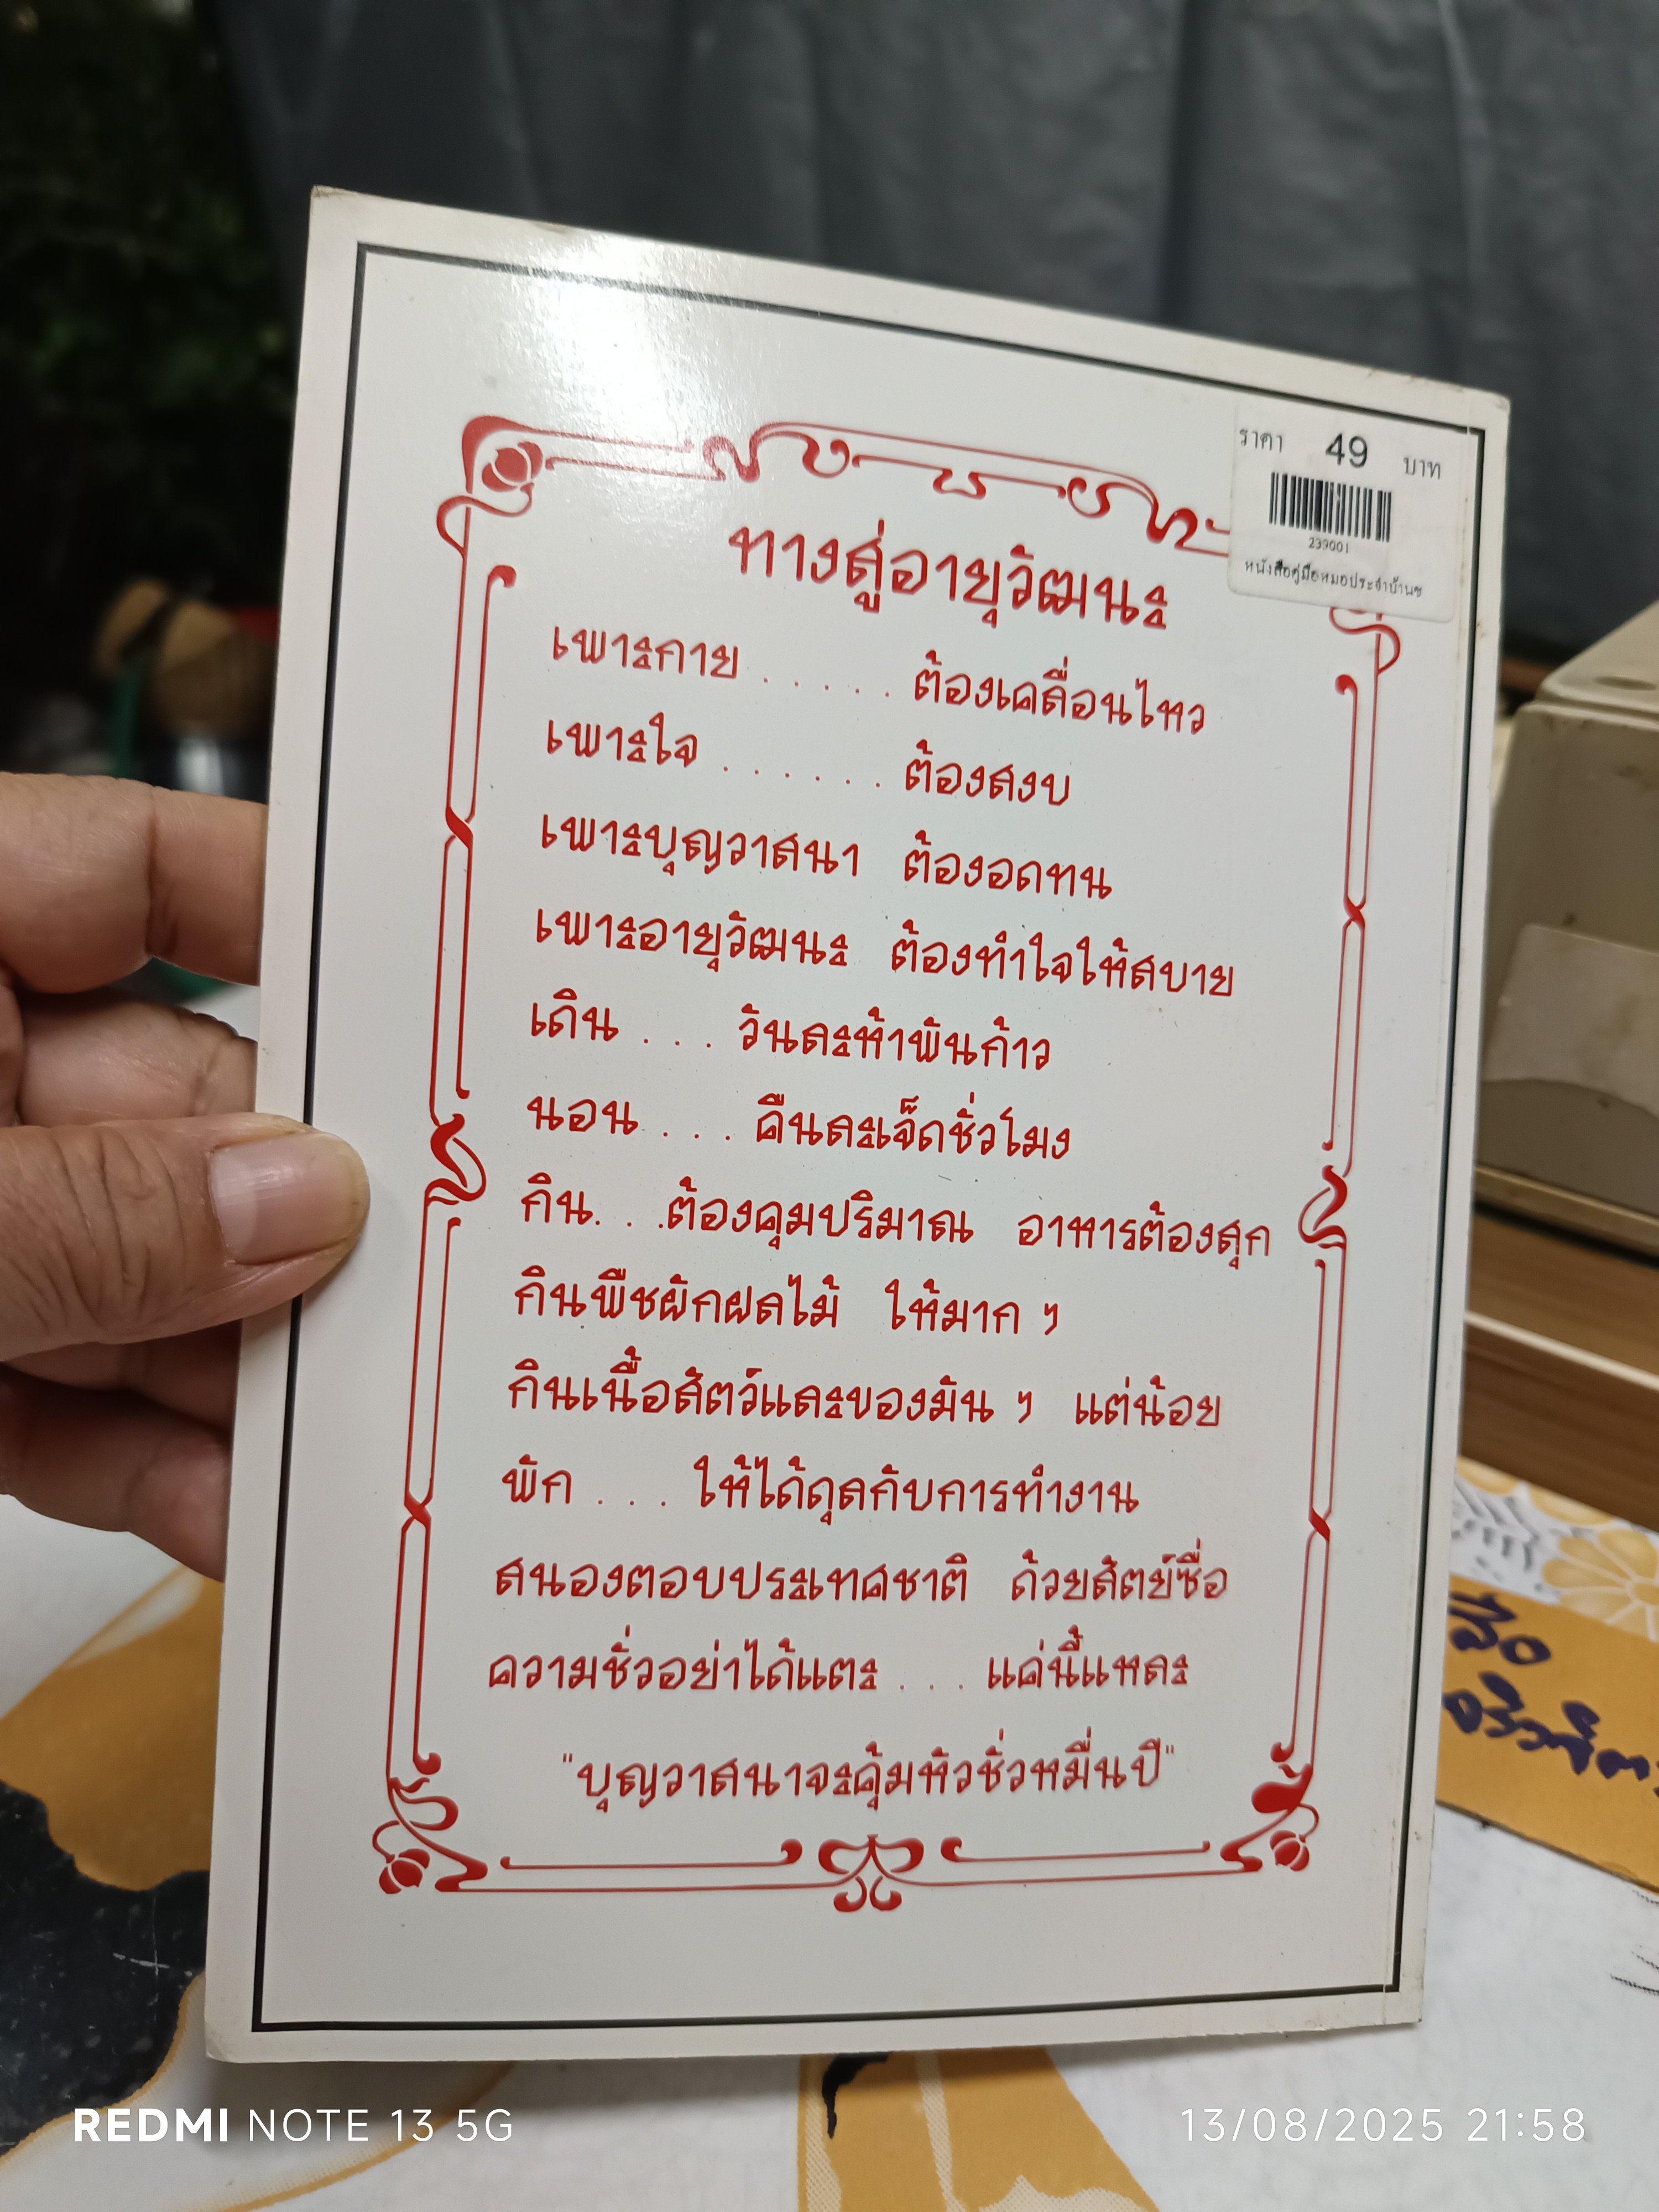 ราคา 49 บาท
239001
หนังสือคู่มือหมอประจำบ้านช
ทางสู่อายุวัฒนะ
เพาะกาย ..... ต้องเคลื่อนไหว
เพาะใจ ...... ต้องสงบ
เพาะบุญวาสนา ต้องอดทน
เพาะอายุวัฒนะ ต้องทำใจให้สบาย
เดิน ... วันละห้าพันก้าว
นอน ... คืนละเจ็ดชั่วโมง
กิน...ต้องคุมปริมาณ อาหารต้องสุก
กินพืชผักผลไม้ ให้มาก ๆ
กินเนื้อสัตว์และของมัน ๆ แต่น้อย
พัก ... ให้ได้ดุลกับการทำงาน
สนองตอบประเทศชาติ ด้วยสัตย์ซื่อ
ความชั่วอย่าได้แตะ ... แค่นี้แหละ
"บุญวาสนาจะคุ้มหัวชั่วหมื่นปี"
REDMI NOTE 13 5G
13/08/2025 21:58